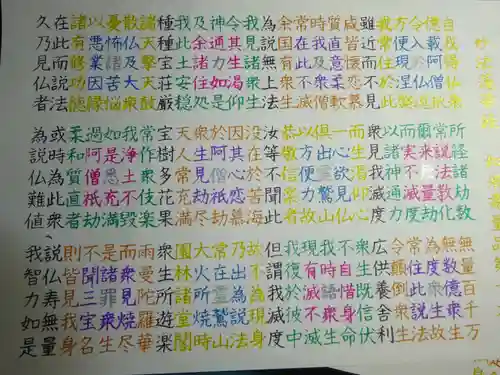 自我得仏来 所経諸劫数 無量百千万
億載阿僧祇 常説法教化 無数億衆生
令入於仏道 爾来無量劫 為度衆生故
方便現涅槃 而実不滅度 常住此説法
我常住於此 以諸神通力 令顛倒衆生
雖近而不見 衆見我滅度 広供養舎利
咸皆懐恋慕 而生渇仰心 衆生既信伏
質直意柔軟 一心欲見仏 不自惜身命
時我及衆僧 倶出霊鷲山 我時語衆生
常在此不滅 以方便力故 現有滅不滅
余国有衆生 恭敬信楽者 我復於彼中
為説無上法 汝等不聞此 但謂我滅度
我見諸衆生 没在於苦海 故不為現身
令其生渇仰 因其心恋慕 乃出為説法
神通力如是 於阿僧祇劫 常在霊鷲山
及余諸住処 衆生見劫尽 大火所焼時
我此土安穏 天人常充満 園林諸堂閣
種種宝荘厳 宝樹多花果 衆生所遊楽
諸天撃天鼓 常作衆伎楽 雨曼陀羅華
散仏及大衆 我浄土不毀 而衆見焼尽
憂怖諸苦悩 如是悉充満 是諸罪衆生
以悪業因縁 過阿僧祇劫 不聞三宝名
諸有修功徳 柔和質直者 則皆見我身
在此而説法 或時為此衆 説仏寿無量
久乃見仏者 為説仏難値 我智力如是